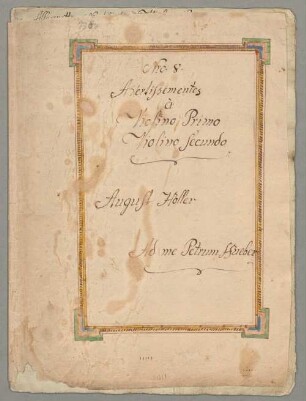 No 8
Avertissementes
à
Violino Primo
Violino Secundo
August Höller
Ad me Petrum Hueber